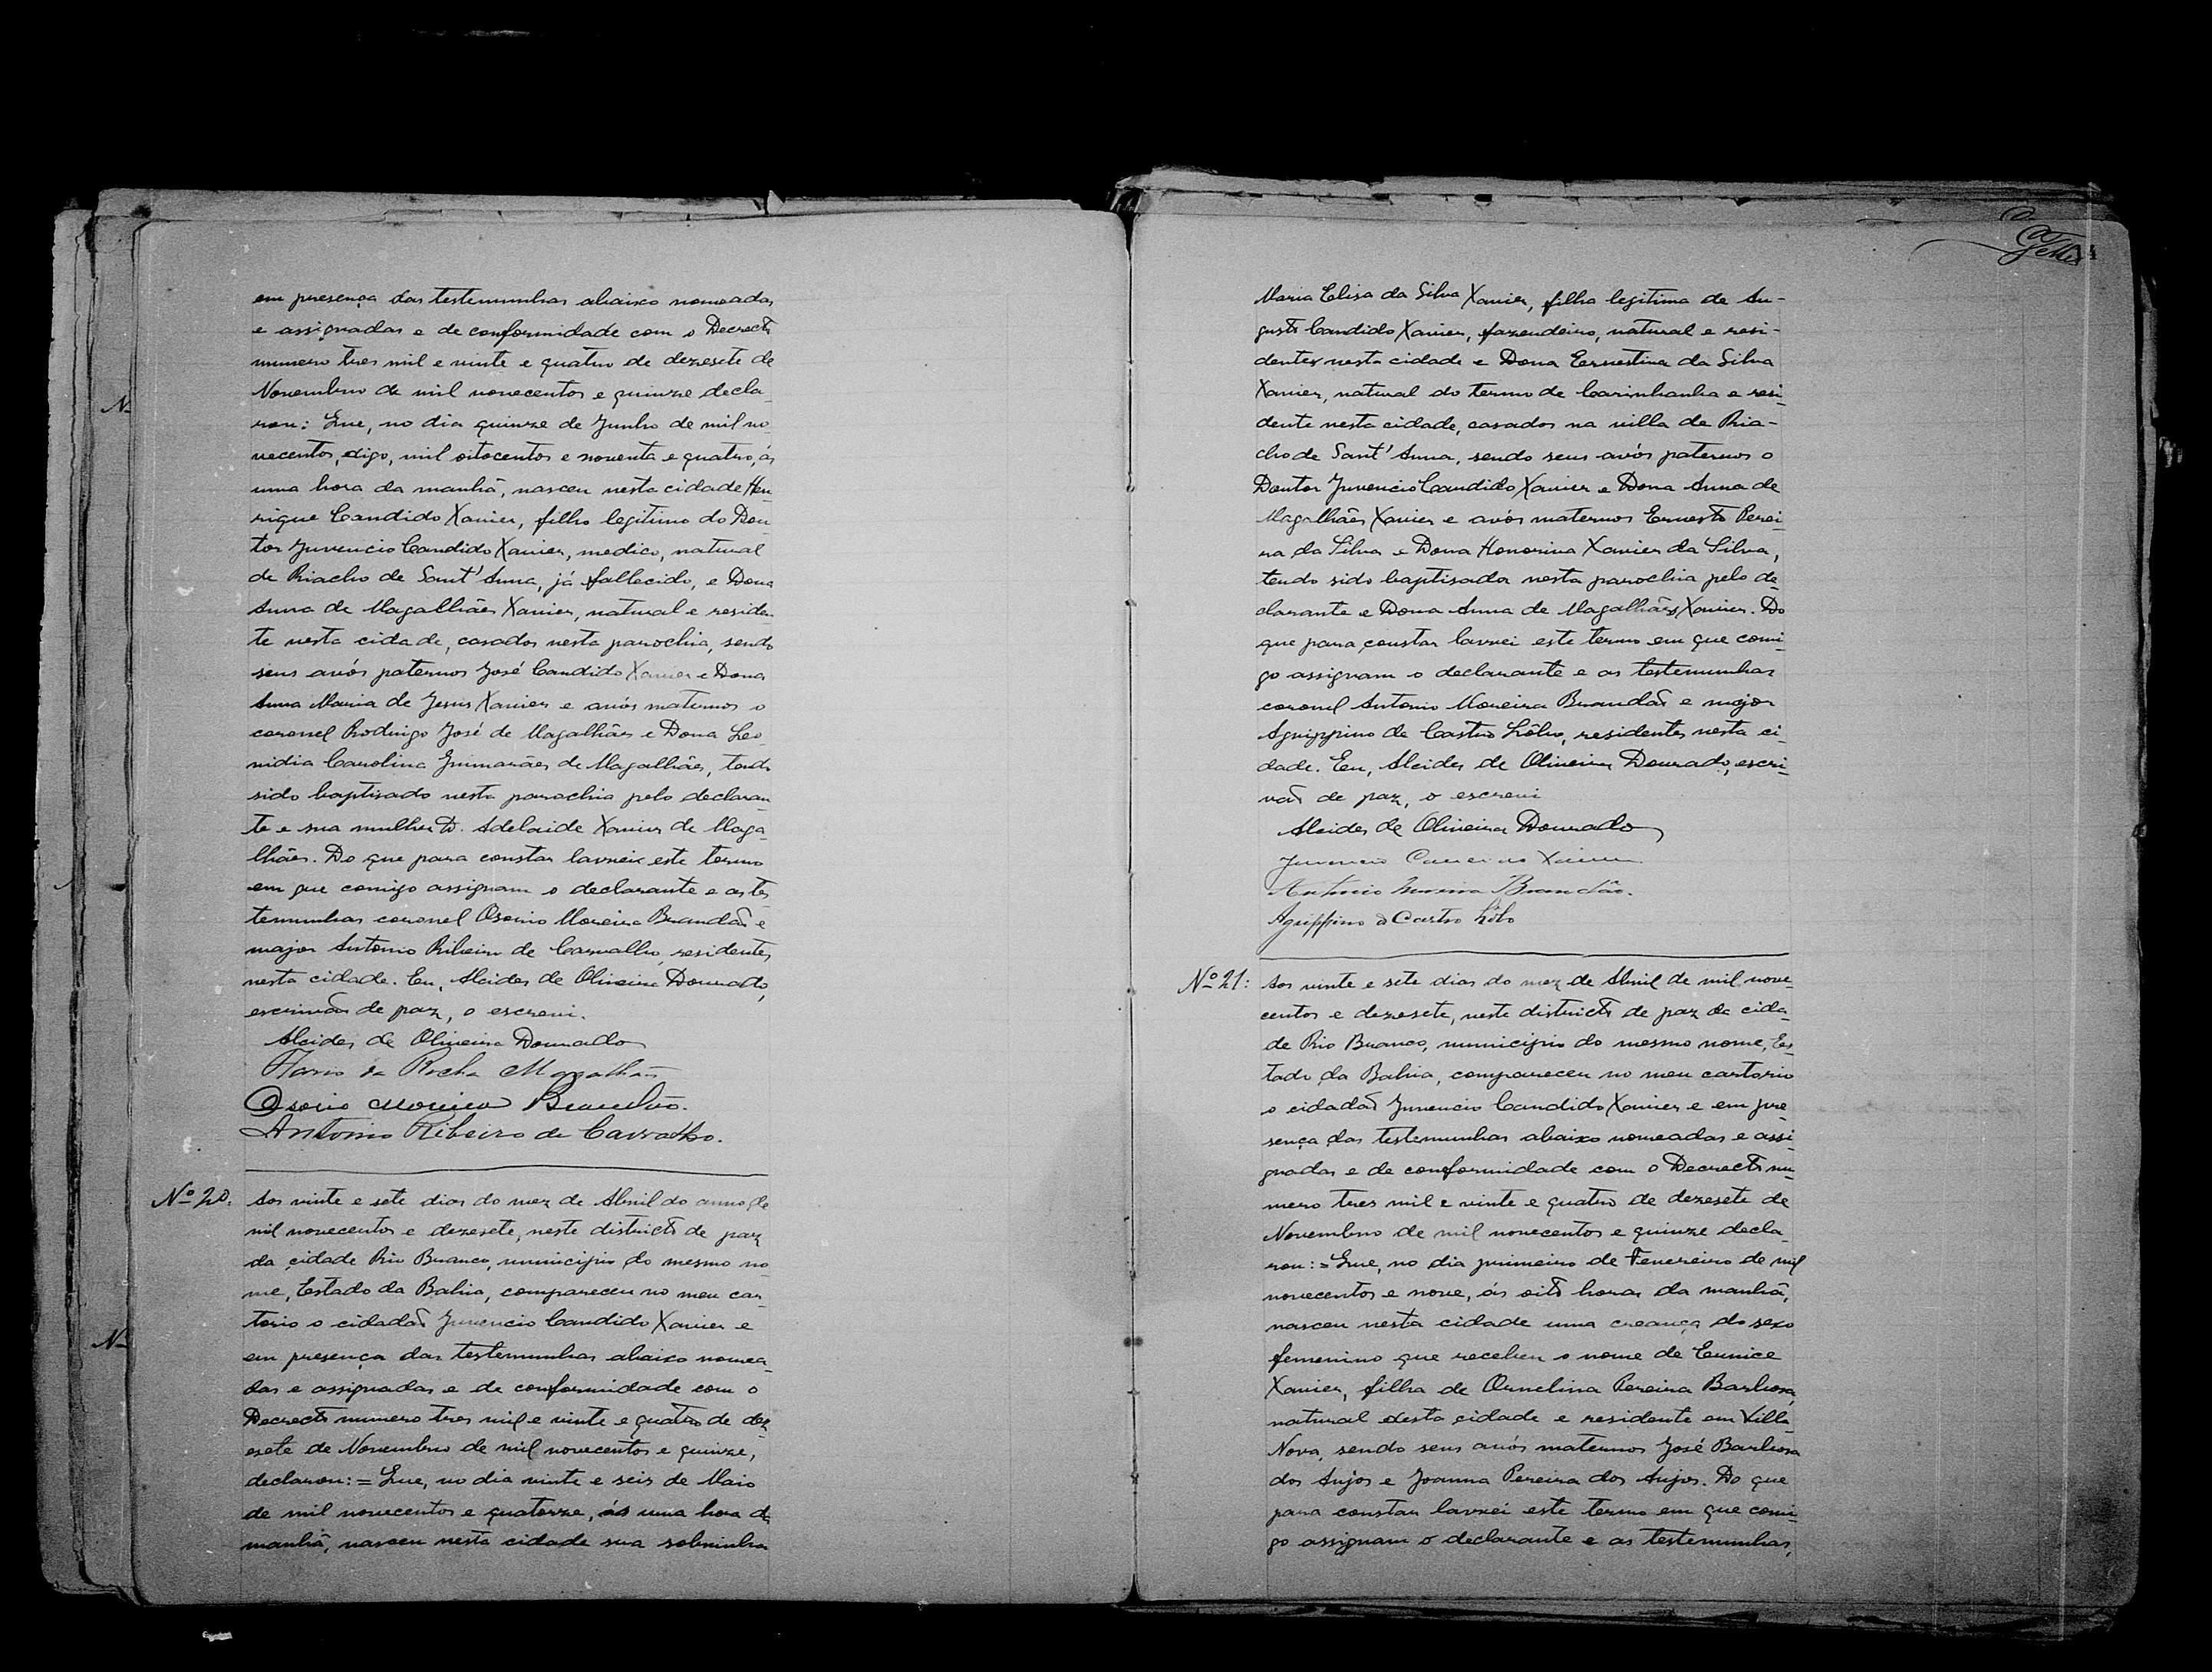 em presença das testemunhas abaixo nomeadas
e assignadas e de conformidade com o Decreto
numero tres mil e vinte e quatro de dezesete de
Novembro de mil novecentos e quinze decla-
rou: Que, no dia quinze de Junho de mil no
vecentos, digo, mil oitocentos e noventa e quatro, ás
uma hora da manhã, nasceu nesta cidade Hen
rique Candido Xavier, filho legitimo do Dou
tor Juvencio Candido Xavier, medico, natural
de Riacho de Sant'Anna, já fallecido, e Dona
Anna de Magalhães Xavier, natural e residen
te nesta cidade, casados nesta parochia, sendo
seus avós paternos José Candido Xavier e Dona
Anna Maria de Jesus Xavier e avós maternos o
coronel Rodrigo José de Magalhães e Dona Leo
nidia Carolina Guimarães de Magalhães, tendo
sido baptisado nesta parochia pelo declaran
te e sua mulher D. Adelaide Xavier de Maga
lhães. Do que para constar lavrei este termo
em que comigo assignam o declarante e as tes
temunhas coronel Osorio Moreira Brandão e
major Antonio Ribeiro de Carvalho, residentes
nesta cidade. Eu, Alcides de Oliveira Dourado,
escrivão de paz, o escrevi.
Alcides de Oliveira Dourado
da Rocha Magalhães
Osorio Moreira Brandão.
Antonio Ribeiro de Carvalho.
Nº 20: Aos vinte e sete dias do mez de Abril do anno de
mil novecentos e dezesete, neste districto de paz
da cidade Rio Branco, municipio do mesmo no
me, Estado da Bahia, compareceu no meu car
torio o cidadão Juvencio Candido Xavier e
em presença das testemunhas abaixo nomea
das e assignadas e de conformidade com o
Decreto numero tres mil e vinte e quatro de dez
esete de Novembro de mil novecentos e quinze,
declarou: = Que, no dia vinte e seis de Maio
de mil novecentos e quatorze, ás uma hora da
manhã, nasceu nesta cidade sua sobrinha
Maria Elisa da Silva Xavier, filha legitima de Au-
gusto Candido Xavier, fazendeiro, natural e resi-
dente nesta cidade e Dona Ernestina da Silva
Xavier, natural do termo de Carinhanha e resi
dente nesta cidade, casados na villa de Ria-
cho de Sant'Anna, sendo seus avós paternos o
Doutor Juvencio Candido Xavier e Dona Anna de
Magalhães Xavier e avós maternos Ernesto Perei-
ra da Silva e Dona Honorina Xavier da Silva,
tendo sido baptisada nesta parochia pelo de
clarante e Dona Anna de Magalhães Xavier. Do
que para constar lavrei este termo em que comi-
go assignam o declarante e as testemunhas
coronel Antonio Moreira Brandão e major
Agrippino de Castro Lôbo, residentes nesta ci-
dade. Eu, Alcides de Oliveira Dourado, escri-
vão de paz, o escrevi
Alcides de Oliveira Dourado
Juvencio Candido Xavier
Antonio Moreira Brandão.
Agrippino de Castro Lôbo
Nº 21: Aos vinte e sete dias do mez de Abril de mil nove-
centos e dezesete, neste districto de paz da cida
de Rio Branco, municipio do mesmo nome, Es-
tado da Bahia, compareceu no meu cartorio
o cidadão Juvencio Candido Xavier e em pre
sença das testemunhas abaixo nomeadas e assi
gnadas e de conformidade com o Decreto nu
mero tres mil e vinte e quatro de dezesete de
Novembro de mil novecentos e quinze decla-
rou: = Que, no dia primeiro de Fevereiro de mil
novecentos e nove, ás oito horas da manhã,
nasceu nesta cidade uma creança do sexo
femenino que recebeu o nome de Eunice
Xavier, filha de Ornelina Pereira Barbosa,
natural desta cidade e residente em Villa
Nova, sendo seus avós maternos José Barbosa
dos Anjos e Joanna Pereira dos Anjos. Do que
para constar lavrei este termo em que comi-
go assignam o declarante e as testemunhas,